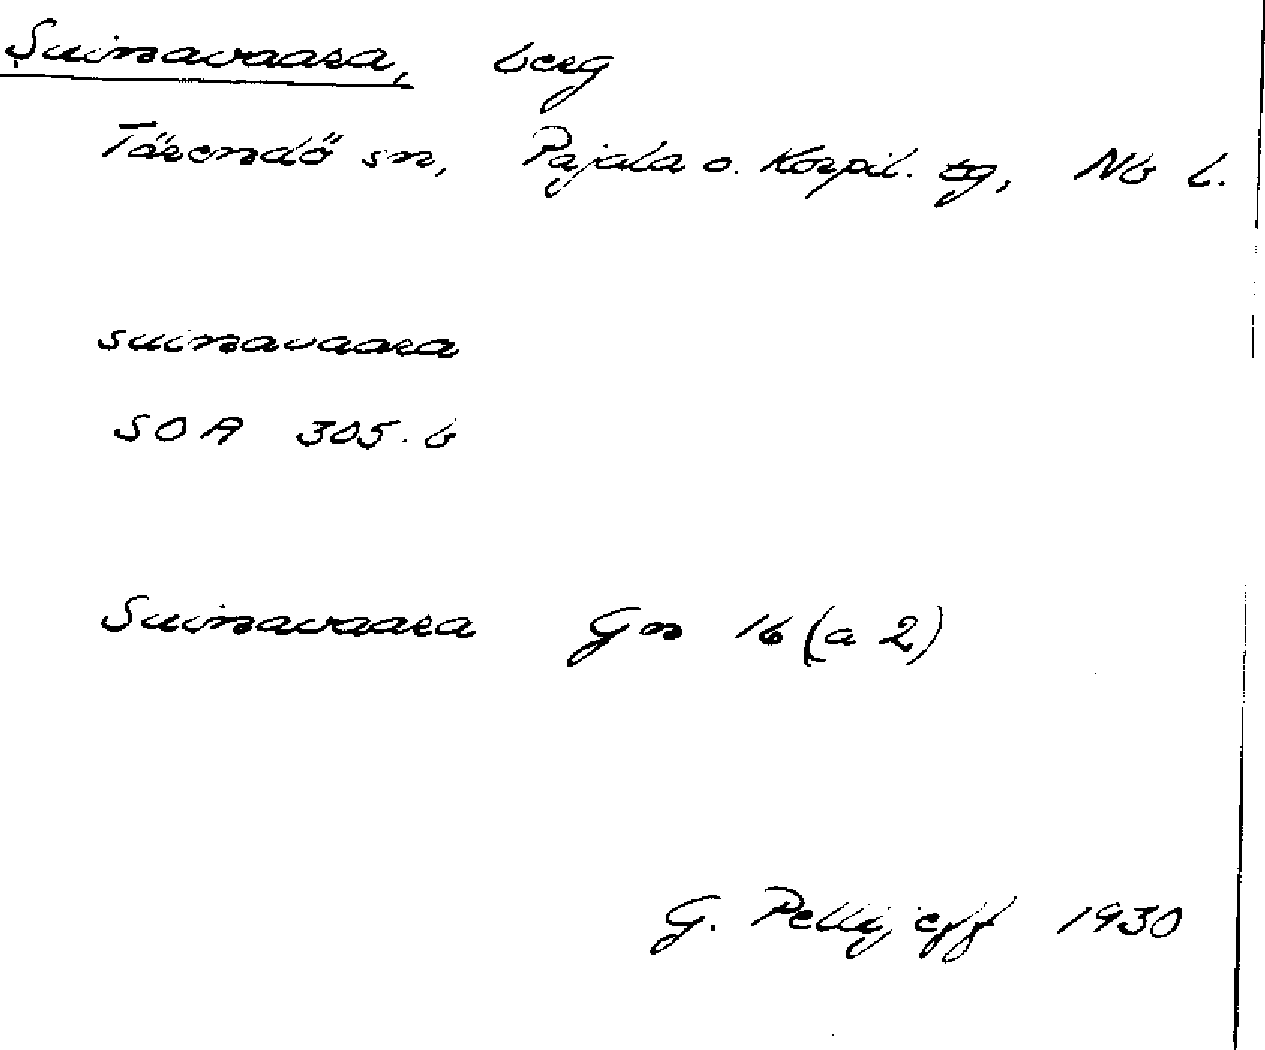 Suinavaara, berg
Tärendö sn, Pajala o. Korpil. tg, Nb l.
suinavaara
SOA 305. b
Suinavaara Gn 16 (a 2)
G. Pellijeff 1930